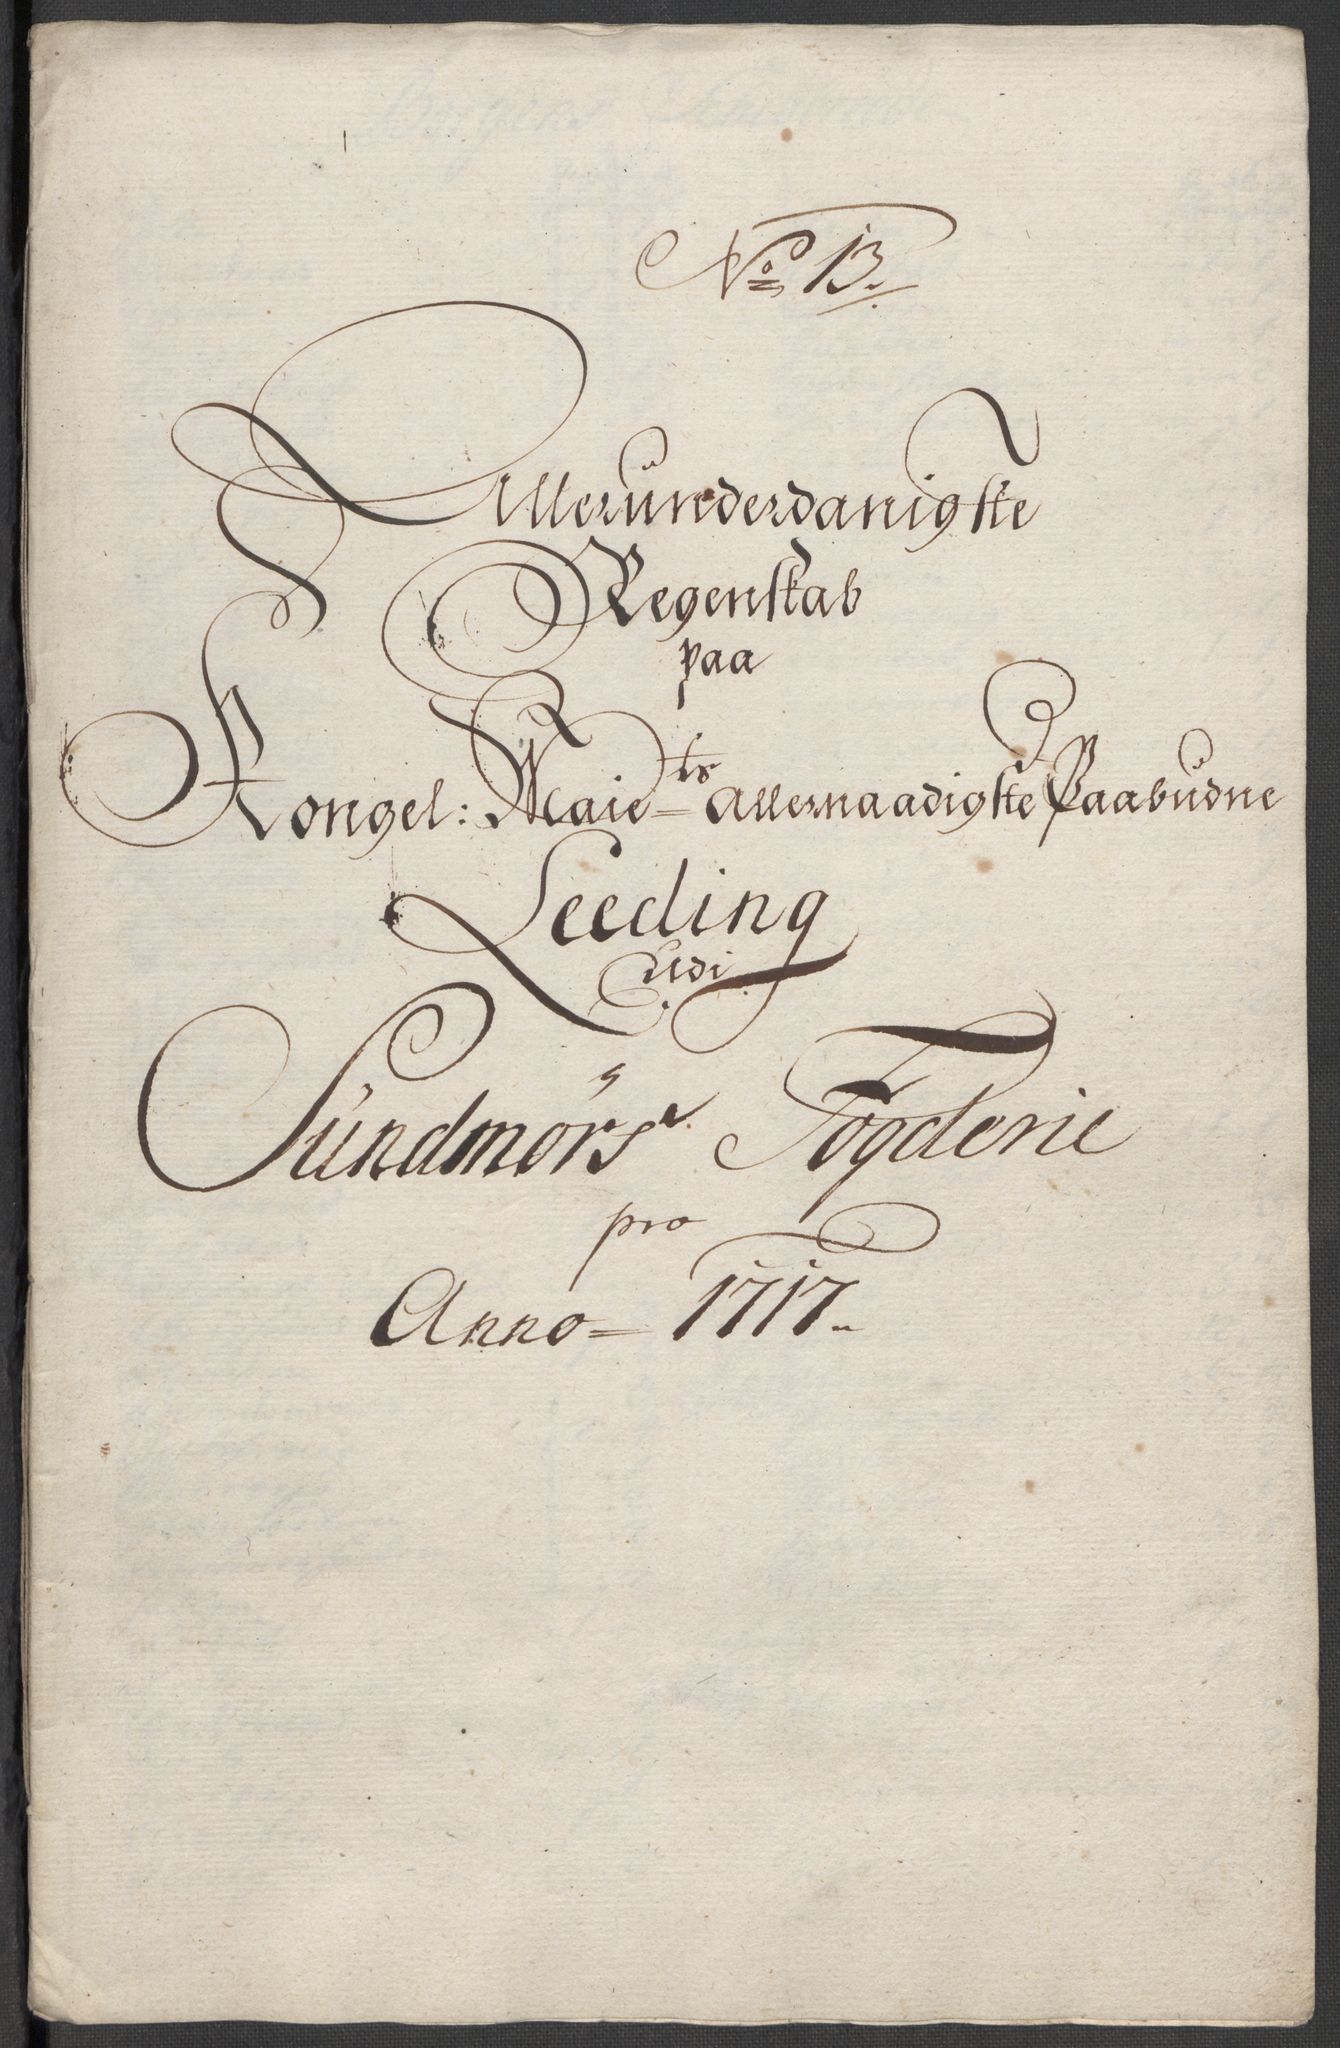 No 13.
Alleründerdanigste
Regenskab
paa
Kongel: Maie=ts Allernaadigste Paabüdne
Leeding
udi
Sündmörs Fogderie
pro
Anno= 1717